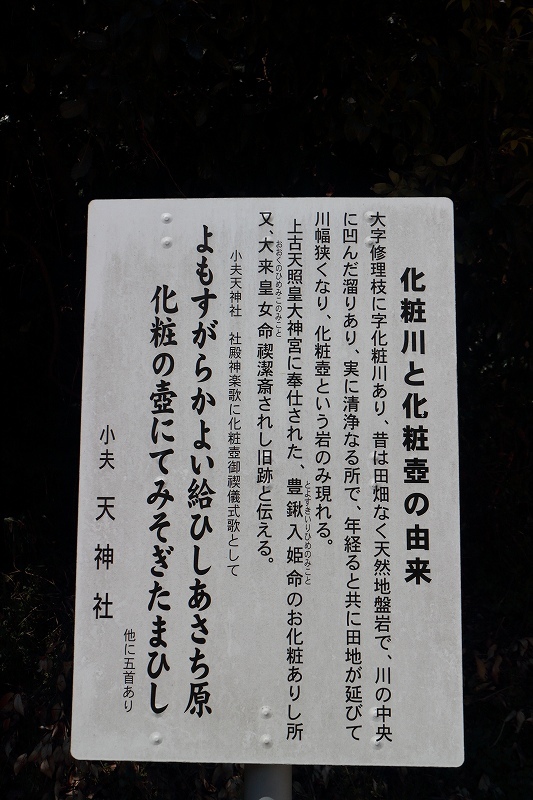 化粧川と化粧壺の由来
大字修理枝に字化粧川あり、昔は田畑なく天然地盤岩で、川の中央
に凹んだ溜りあり、実に清浄なる所で、年経ると共に田地が延びて
川幅狭くなり、化粧壺という岩のみ現れる。
上古天照皇大神宮に奉仕された、豊鍬入姫命のお化粧ありし所
とよすきいりひめのみこと
又、大来皇女命禊潔斎されし旧跡と伝える。
おおくのひめみこのみこと
小夫天神社 社殿神楽歌に化粧壺御禊儀式歌として
よもすがらかよい給ひしあさち原
化粧の壺にてみそぎたまひし
他に五首あり
小夫 天神社